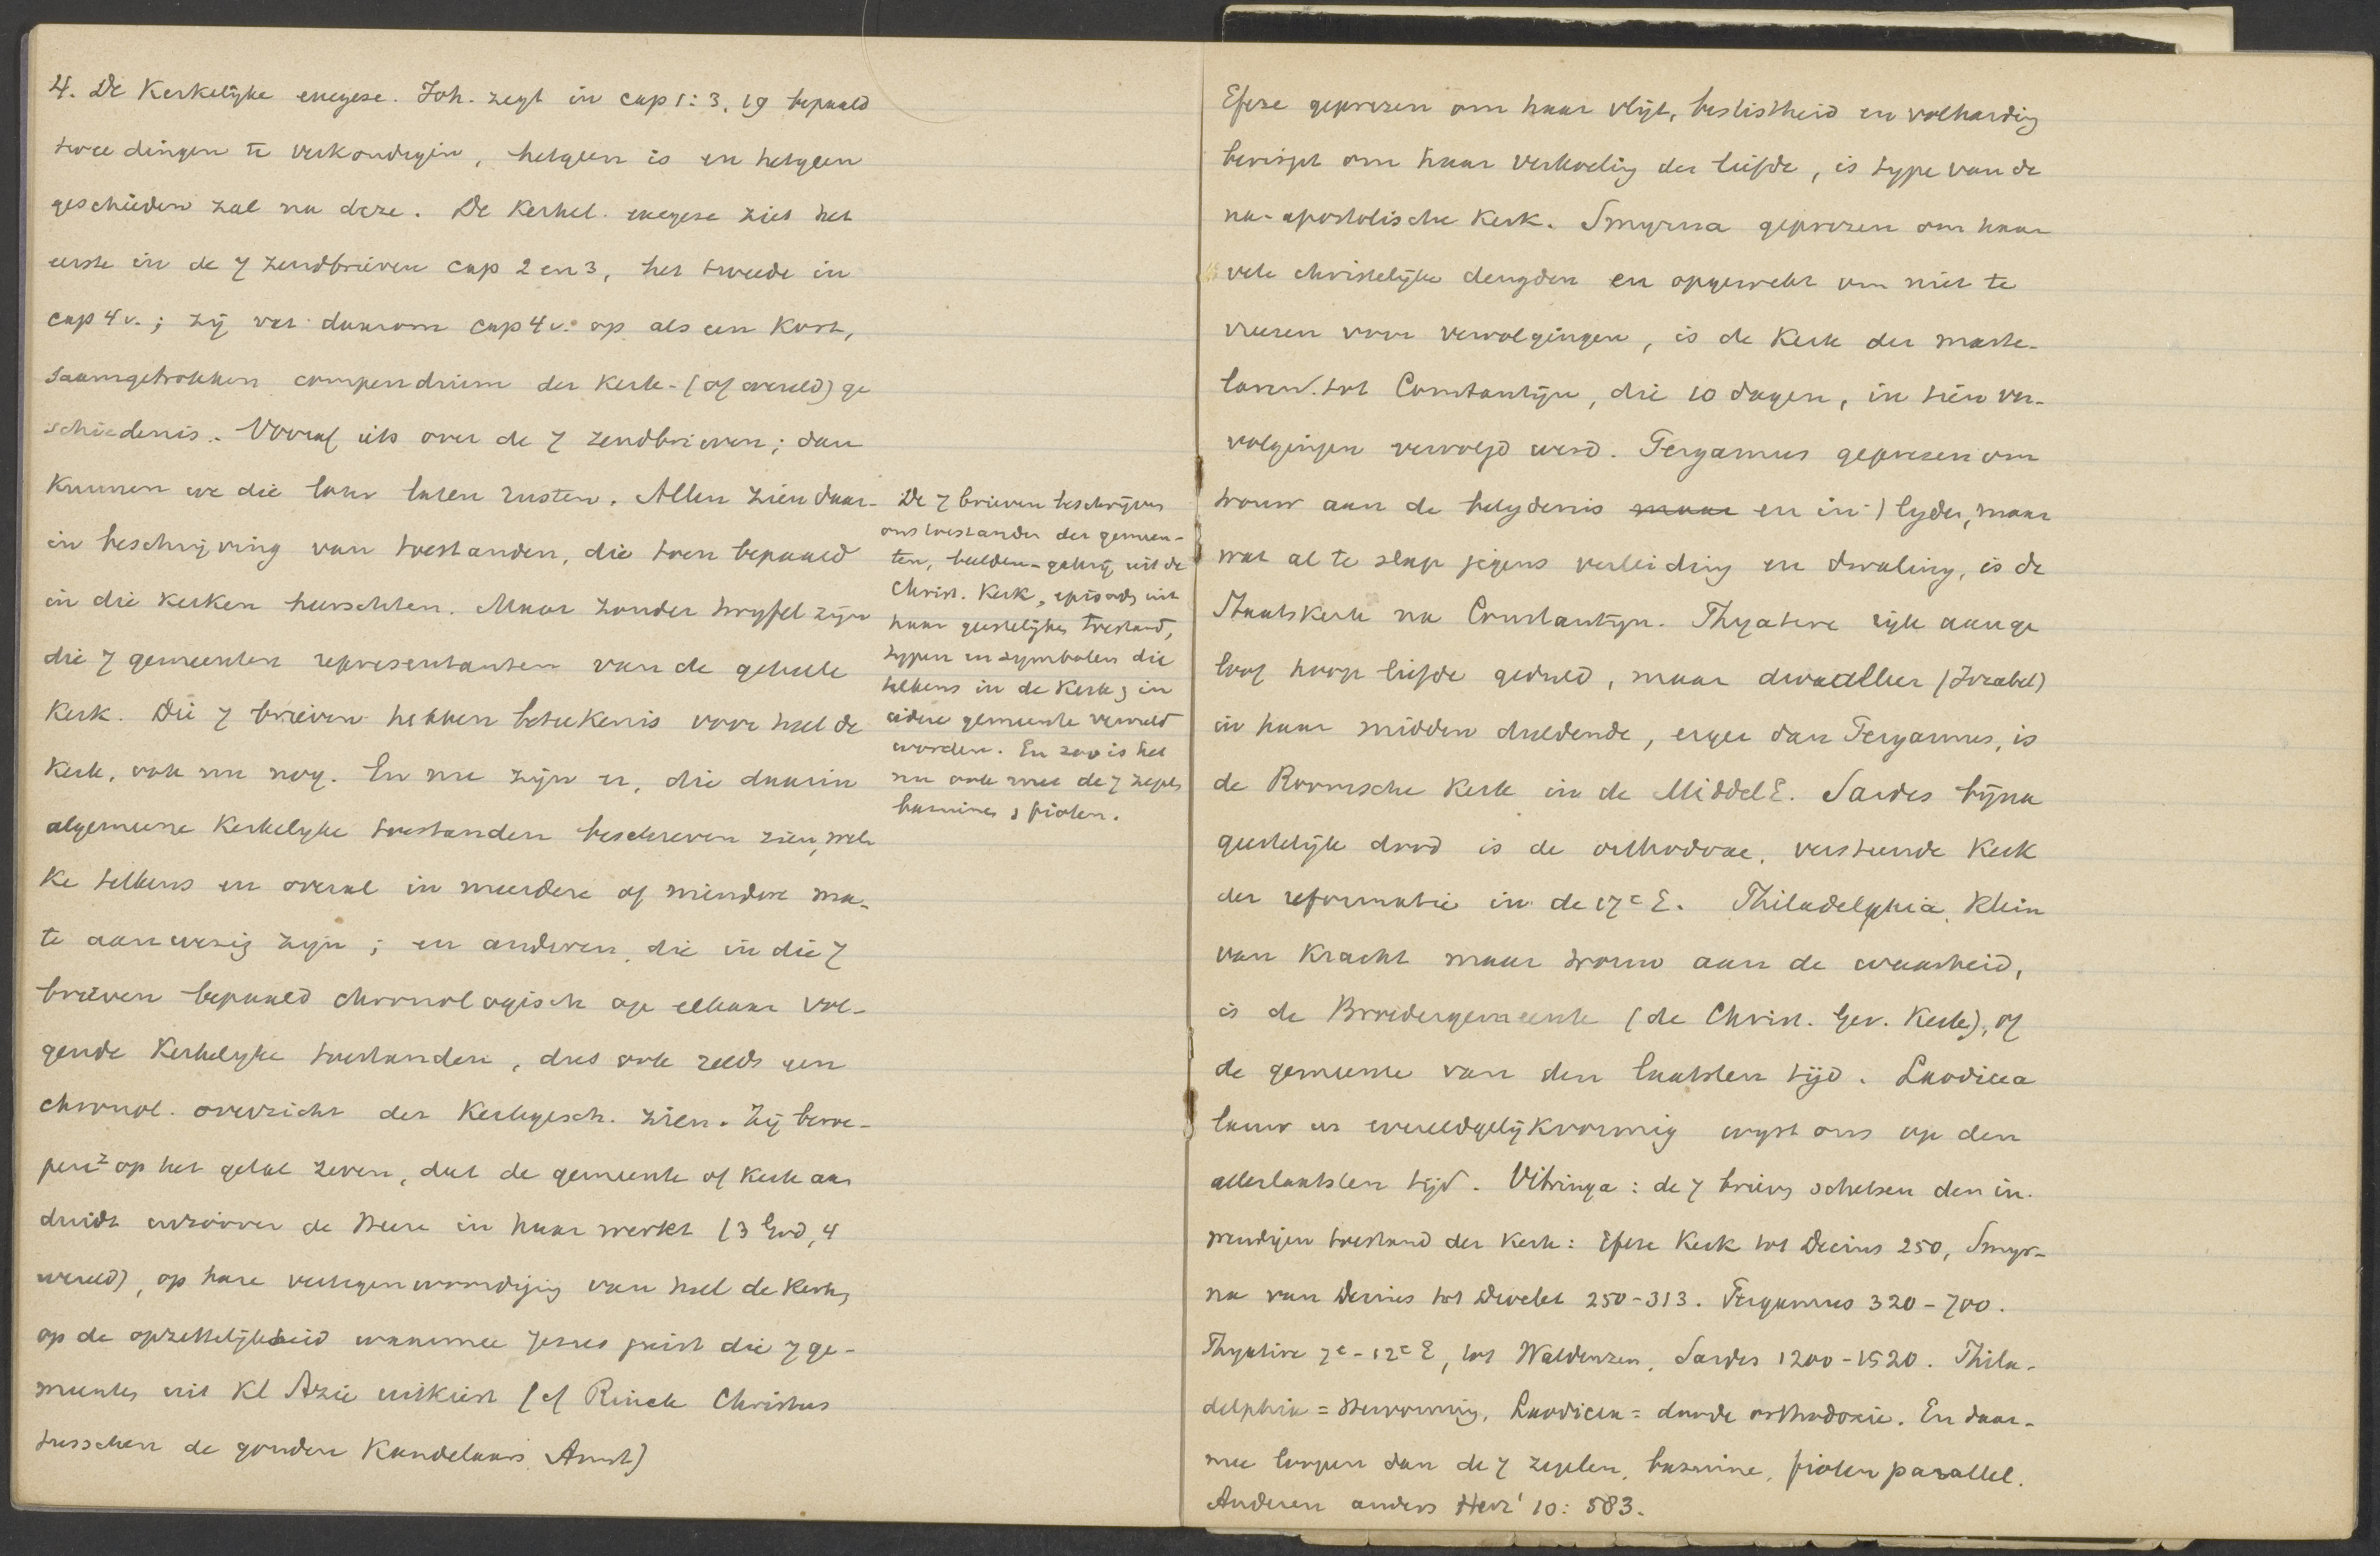 4. De Kerkelijke exegese. Joh. zegt in cap 1: 3, 19 bepaald
twee dingen te verkondigen, hetgeen is en hetgeen
geschieden zal na deze. De Kerkel. exegese ziet het
eerste in de 7 zendbrieven cap 2 en 3, het tweede in
cap 4 v.; zij vat daarom cap 4 v. op als een kort,
saamgetrokken compendium der Kerk-(of wereld) ge
schiedenis. Vooraf iets over de 7 zendbrieven; dan
kunnen we die later laten rusten. Allen zien daar-
in beschrijving van toestanden, die toen bepaald
in die kerken heerschten. Maar zonder twyfel zijn
die 7 gemeenten representanten van de geheele
Kerk. Die 7 brieven hebben beteekenis voor heel de
Kerk, ook nu nog. En nu zijn er, die daarin
algemeene Kerkelyke toestanden beschreven zien, wel
ke telkens en overal in meerdere of mindere ma-
te aanwezig zijn; en anderen, die in die 7
brieven bepaald chronologisch op elkaar vol-
gende Kerkelyke toestanden, dus ook reeds een
chronol. overzicht der Kerkgesch. zien. Zij beroe-
pen z op het getal zeven, dat de gemeente of Kerk aan
duidt inzoover de Heere in haar werkt (3 God, 4
wereld), op hare vertegenwoordiging van heel de Kerk,
op de opzettelijkheid waarmee Jezus juist die 7 ge-
meenten uit Kl Azie uitkiest (cf Rinck Christus
tusschen de gouden Kandelaars Amst)
De 7 brieven beschrijven
ons toestanden der gemeen-
ten, beelden-galerij uit de
Christ. Kerk, episodes uit
haar geestelijken toestand,
typen en symbolen die
telkens in de Kerk, in
iedere gemeente vervuld
worden. En zoo is het
nu ook met de 7 zegels
bazuinen, fiolen.
Efeze geprezen om haar vlijt, beslistheid en volharding
berispt om haar verkoeling der liefde, is type van de
na-apostolische Kerk. Smyrna geprezen om haar
vele christelijke deugden en opgewekt om niet te
vreezen voor vervolgingen, is de Kerk der marte-
laren tot Constantijn, die 10 dagen, in tien ver-
volgingen vervolgd werd. Pergamus geprezen om
trouw aan de belydenis maar en in 't lyden, maar
wat al te slap jegens verleiding en dwaling, is de
Staatskerk na Constantijn. Thyatire rijk aan ge
loof hoop liefde geduld, maar dwaalleer (Izebel)
in haar midden duldende, erger dan Pergamus, is
de Roomsche Kerk in de MiddelE. Sardes bijna
geestelijk dood is de orthodoxe, versteende Kerk
der reformatie in de 17e E. Philadelphia, klein
van Kracht maar trouw aan de waarheid,
is de Broedergemeente (de Christ. Ger. Kerk), of
de gemeente van den laatsten tijd. Laodicea
lauw en wereldgelijkvormig wyst ons op den
allerlaatsten tijd. Vitringa: de 7 brieven schetsen den in-
wendigen toestand der Kerk: Efeze Kerk tot Decius 250, Smyr-
na van Decius tot Diocles 250-313. Pergamus 320-700.
Thyatire 7e-12e E, tot Waldenzen, Sardes 1200-1520. Phila-
delphia = Hervorming, Laodicea = doode orthodoxie. En daar-
mee loopen dan de 7 zegelen, bazuine, fiolen parallel.
Anderen anders Herz' 10: 583.